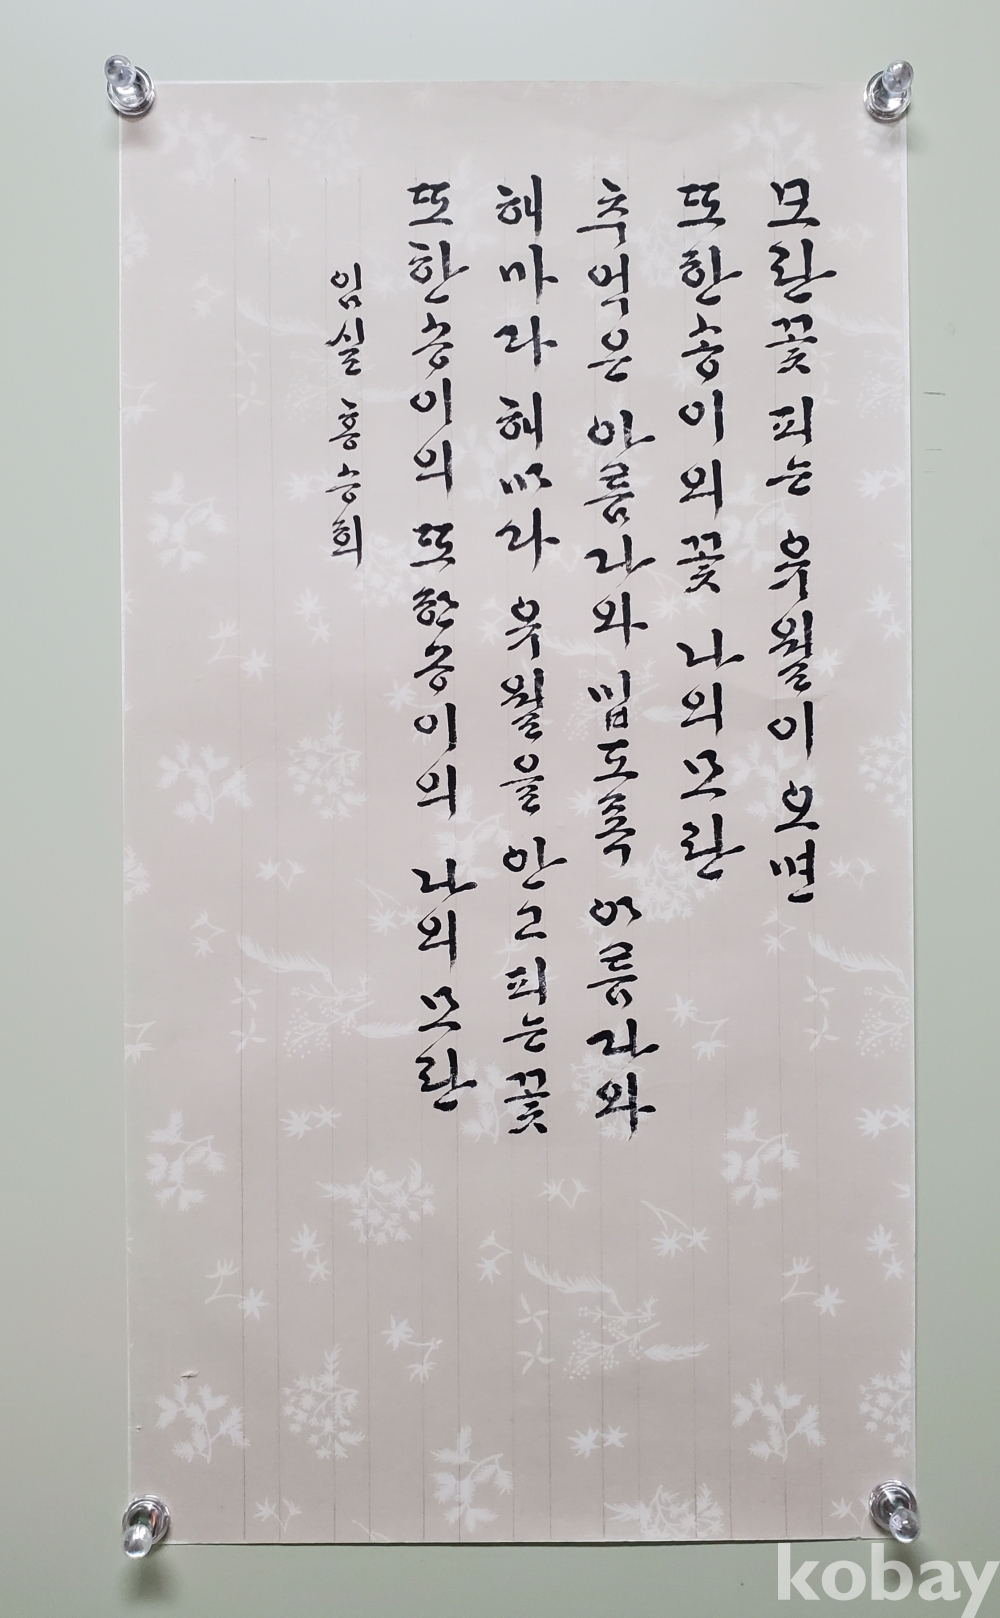 모란꽃 피는 유월이 오면
또한송이의꽃 나의모란
추억은 아름다와 밉도록 아름다와
해마다 해마다 유월을 안고피는꽃
또한송이의 또한송이의 나의 모란
임실 홍승희
kobay